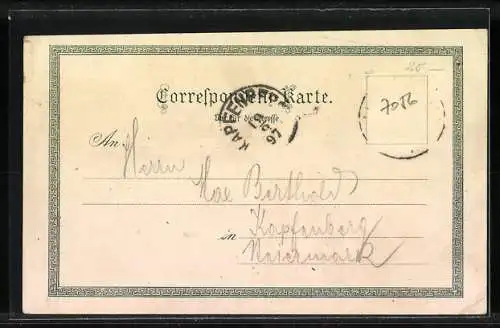 Correspondenz-Karte.
Nur für die Adresse.
KAPFENBERG
97
20
7086
An
Herrn
Max Berthold
in Kapfenberg
Steiermark